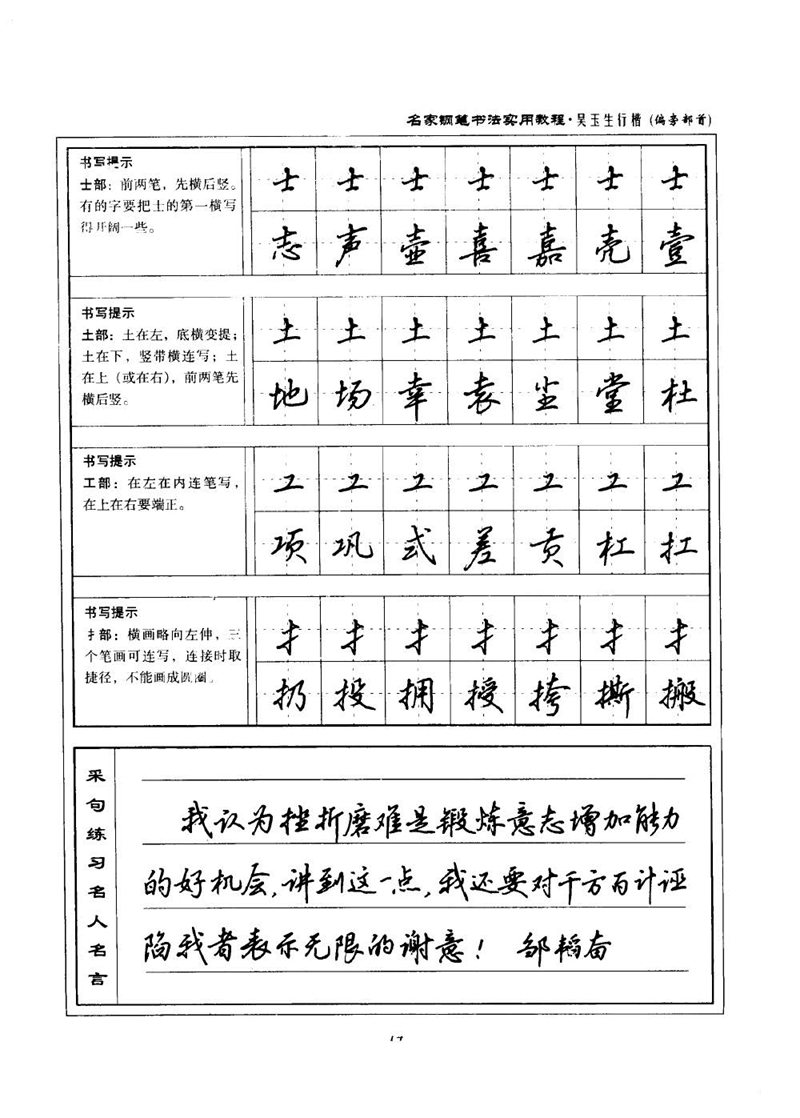 名家钢笔书法实用教程·吴玉生行楷(偏旁部首)
书写提示
士部：前两笔，先横后竖。
有的字要把士的第一横写
得开阔一些。
士 士 士 士 士 士 士
志 声 壶 喜 嘉 壳 壹
书写提示
土部：土在左，底横变提；
土在下，竖带横连写；土
在上（或在右），前两笔先
横后竖。
土 土 土 土 土 土 土
地 场 幸 袁 尘 堂 杜
书写提示
工部：在左在内连笔写，
在上在右要端正。
工 工 工 工 工 工 工
项 巩 式 差 贡 杠 扛
书写提示
扌部：横画略向左伸，三
个笔画可连写，连接时取
捷径，不能画成圆圈。
扌 扌 扌 扌 扌 扌 扌
扔 投 拥 授 挎 撕 搬
采句练习名人名言
我认为挫折磨难是锻炼意志增加能力
的好机会,讲到这一点,我还要对千方百计诬
陷我者表示无限的谢意！ 邹韬奋